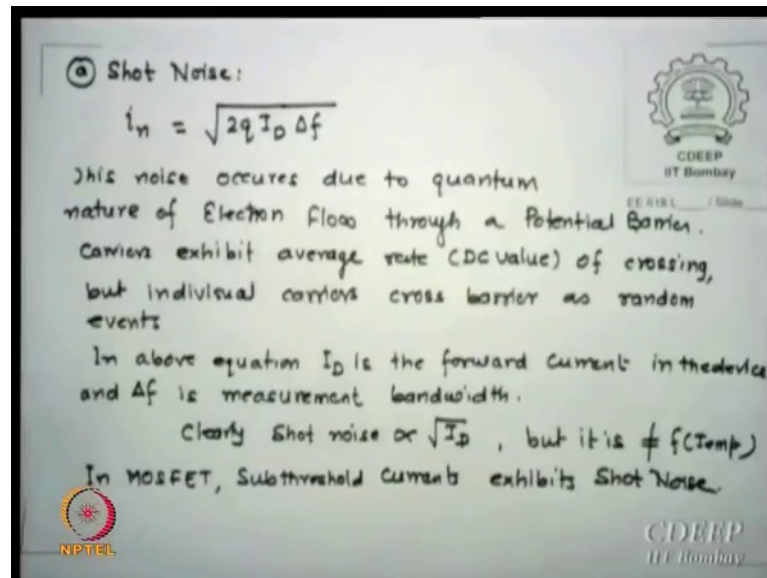 ⓐ Shot Noise:
iₙ = √2q I_D Δf
This noise occures due to quantum
nature of Electron Flow through a Potential Barrier.
Carriers exhibit average rate (DC value) of crossing,
but indiviual carriers cross barrier as random
events
In above equation I_D is the forward current in thedevice
and Δf is measurement bandwidth.
Clearly Shot noise ∝ √I_D , but it is ≠ f(Temp)
In MOSFET, Subthreshold Currents exhibits Shot Noise.
CDEEP
IIT Bombay
EE 618 L / Slide
NPTEL
CDEEP
IIT Bombay